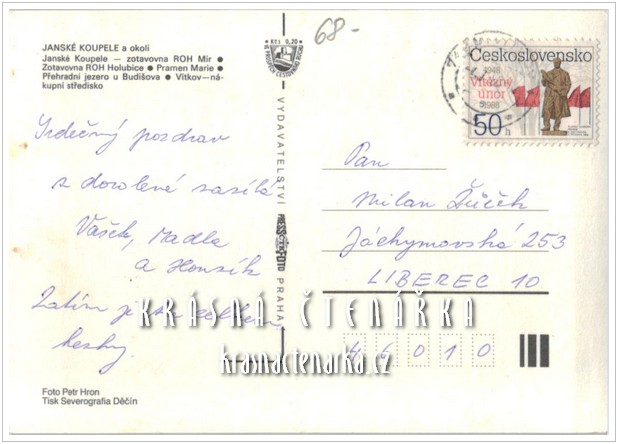 JANSKÉ KOUPELE a okolí
Janské Koupele — zotavovna ROH Mír ●
Zotavovna ROH Holubice ● Pramen Marie ●
Přehradní jezero u Budišova ● Vítkov—ná-
kupní středisko
Kčs 0,20
68-
Československo
1948
Vítězný
únor
1988
50 h
Srdečný pozdrav
z dovolené zasílá
Vašek, Madla
a Honzík
Zatím je tu celkem
hezky.
VYDAVATELSTVÍ PRESSFOTO PRAHA
Pan
Milan Žůček
Jáchymovská 253
LIBEREC 10
46010
KRÁSNÁ ČTENÁŘKA
krasnactenarka.cz
Foto Petr Hron
Tisk Severografia Děčín